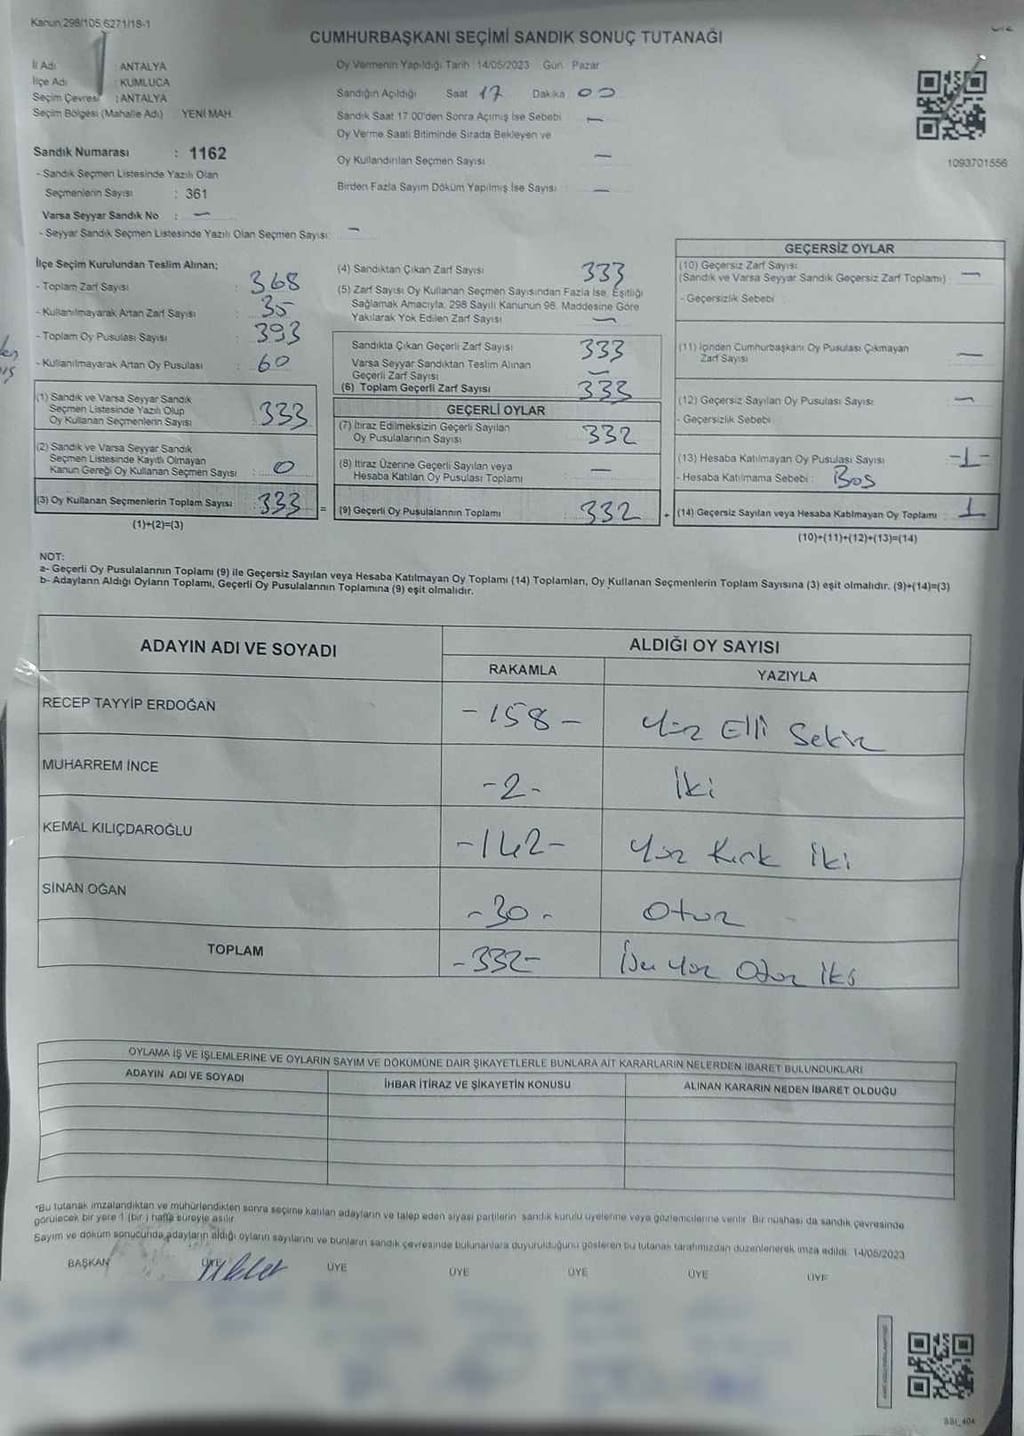 Kanun 298/105 6271/18-1
CUMHURBAŞKANI SEÇİMİ SANDIK SONUÇ TUTANAĞI
İl Adı : ANTALYA
İlçe Adı : KUMLUCA
Seçim Çevresi : ANTALYA
Seçim Bölgesi (Mahalle Adı) YENİ MAH.
Oy Vermenin Yapıldığı Tarih : 14/05/2023 Gün: Pazar
Sandığın Açıldığı Saat 17 Dakika 00
Sandık Saat 17.00'den Sonra Açımış İse Sebebi —
Oy Verme Saati Bitiminde Sırada Bekleyen ve
Oy Kullandırılan Seçmen Sayısı —
Birden Fazla Sayım Döküm Yapılmış İse Sayısı : —
1093701556
Sandık Numarası : 1162
- Sandık Seçmen Listesinde Yazılı Olan
Seçmenlerin Sayısı : 361
Varsa Seyyar Sandık No : —
- Seyyar Sandık Seçmen Listesinde Yazılı Olan Seçmen Sayısı: —
İlçe Seçim Kurulundan Teslim Alınan;
- Toplam Zarf Sayısı : 368
- Kullanılmayarak Artan Zarf Sayısı : 35
- Toplam Oy Pusulası Sayısı : 393
- Kullanılmayarak Artan Oy Pusulası : 60
(1) Sandık ve Varsa Seyyar Sandık
Seçmen Listesinde Yazılı Olup
Oy Kullanan Seçmenlerin Sayısı : 333
(2) Sandık ve Varsa Seyyar Sandık
Seçmen Listesinde Kayıtlı Olmayan
Kanun Gereği Oy Kullanan Seçmen Sayısı : 0
(3) Oy Kullanan Seçmenlerin Toplam Sayısı : 333 =
(1)+(2)=(3)
(4) Sandıktan Çıkan Zarf Sayısı 333
(5) Zarf Sayısı Oy Kullanan Seçmen Sayısından Fazla İse, Eşitliği
Sağlamak Amacıyla, 298 Sayılı Kanunun 98. Maddesine Göre
Yakılarak Yok Edilen Zarf Sayısı —
Sandıkta Çıkan Geçerli Zarf Sayısı 333
Varsa Seyyar Sandıktan Teslim Alınan
Geçerli Zarf Sayısı —
(6) Toplam Geçerli Zarf Sayısı 333
GEÇERLİ OYLAR
(7) İtiraz Edilmeksizin Geçerli Sayılan
Oy Pusulalarının Sayısı 332
(8) İtiraz Üzerine Geçerli Sayılan veya
Hesaba Katılan Oy Pusulası Toplamı —
(9) Geçerli Oy Pusulalarının Toplamı 332 +
GEÇERSİZ OYLAR
(10) Geçersiz Zarf Sayısı
(Sandık ve Varsa Seyyar Sandık Geçersiz Zarf Toplamı) —
- Geçersizlik Sebebi :
(11) İçinden Cumhurbaşkanı Oy Pusulası Çıkmayan
Zarf Sayısı —
(12) Geçersiz Sayılan Oy Pusulası Sayısı —
- Geçersizlik Sebebi
(13) Hesaba Katılmayan Oy Pusulası Sayısı -1-
- Hesaba Katılmama Sebebi : Boş
(14) Geçersiz Sayılan veya Hesaba Katılmayan Oy Toplamı 1
(10)+(11)+(12)+(13)=(14)
NOT:
a- Geçerli Oy Pusulalarının Toplamı (9) ile Geçersiz Sayılan veya Hesaba Katılmayan Oy Toplamı (14) Toplamları, Oy Kullanan Seçmenlerin Toplam Sayısına (3) eşit olmalıdır. (9)+(14)=(3)
b- Adayların Aldığı Oyların Toplamı, Geçerli Oy Pusulalarının Toplamına (9) eşit olmalıdır.
ADAYIN ADI VE SOYADI ALDIĞI OY SAYISI
RAKAMLA YAZIYLA
RECEP TAYYİP ERDOĞAN -158- Yüz Elli Sekiz
MUHARREM İNCE -2- İki
KEMAL KILIÇDAROĞLU -142- Yüz Kırk İki
SİNAN OĞAN -30- Otuz
TOPLAM -332- Üç Yüz Otuz İki
OYLAMA İŞ VE İŞLEMLERİNE VE OYLARIN SAYIM VE DÖKÜMÜNE DAİR ŞİKAYETLERLE BUNLARA AİT KARARLARIN NELERDEN İBARET BULUNDUKLARI
ADAYIN ADI VE SOYADI İHBAR İTİRAZ VE ŞİKAYETİN KONUSU ALINAN KARARIN NEDEN İBARET OLDUĞU
*Bu tutanak imzalandıktan ve mühürlendikten sonra seçime katılan adayların ve talep eden siyasi partilerin sandık kurulu üyelerine veya gözlemcilerine verilir. Bir nüshası da sandık çevresinde
görülecek bir yere 1 (bir) hafta süreyle asılır.
Sayım ve döküm sonucunda adayların aldığı oyların sayılarını ve bunların sandık çevresinde bulunanlara duyurulduğunu gösteren bu tutanak tarafımızdan düzenlenerek imza edildi. 14/05/2023
BAŞKAN ÜYE ÜYE ÜYE ÜYE ÜYE ÜYE
SBI_404